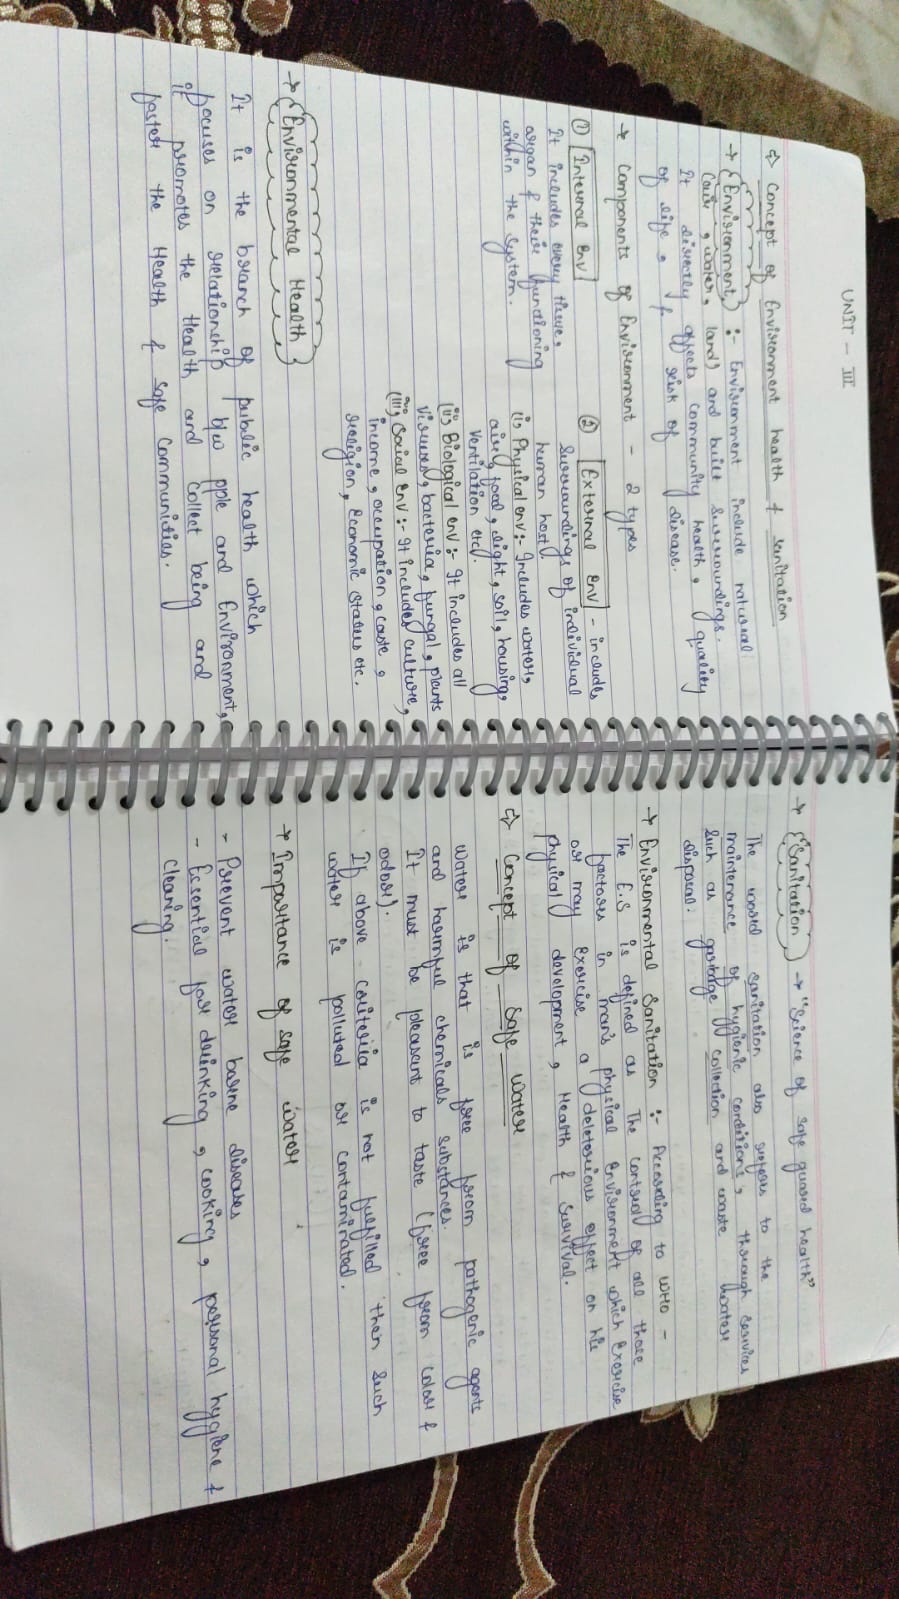 UNIT - III
⇒ Concept of Environment health & sanitation
→ Environment :- Environment include natural
(air, water, land) and built surroundings.
It directly affects community health, quality
of life, & risk of disease.
→ Components of Environment - 2 types
① Internal Env
It includes every tissue,
organ & their functioning
within the system.
② External Env - includes
surroundings of individual
human host.
(i) Physical env:- Includes water,
air, food, light, soil, housing,
Ventilation etc.
(ii) Biological env:- It includes all
viruses, bacteria, fungal, plants
(iii) Social Env:- It includes culture,
income, occupation, caste,
religion, Economic status etc.
→ Environmental Health
It is the branch of public health which
focuses on relationship b/w pple and Environment,
it promotes the Health and collect being and
foster the Health & safe communities.
→ Sanitation → "Science of safe guared health"
The word sanitation also refers to the
maintenance of hygienic conditions, through services
such as garbage collection and waste water
disposal.
→ Environmental Sanitation :- According to WHO -
The E.S is defined as The control of all those
factors in man's physical Environment which Exercise
or may Exercise a deleterious effect on his
physical development, Health & Survival.
⇒ Concept of Safe water
Water is that is free from pathogenic agents
and harmful chemicals substances.
It must be pleasant to taste (free from color &
odor).
If above criteria is not fulfilled then such
water is polluted or contaminated.
→ Importance of safe water
- Prevent water borne diseases
- Essential for drinking, cooking, personal hygiene &
cleaning.